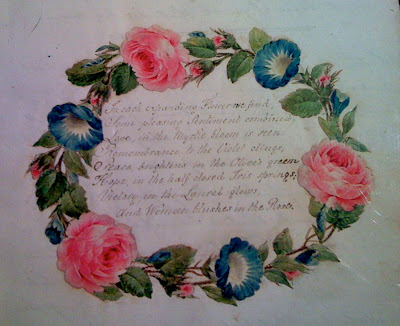 In each expanding flower we find
Some pleasing Sentiment combin'd,
Love, in the Myrtle bloom is seen
Remembrance to the Violet clings,
Peace, brightens in the Olive's green
Hope, in the half closed Iris springs;
Victory on the Laurel glows,
And Woman blushes in the Rose.